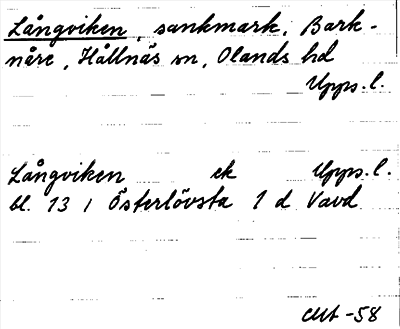 Långviken, sankmark, Bark-
nåre, Hållnäs sn, Olands hd
Upps. l.
Långviken ek Upps. l.
bl. 13 / Österlövsta 1 d Vavd
-58